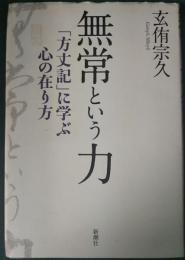 玄侑宗久
無常という力
「方丈記」に学ぶ
心の在り方
新潮社